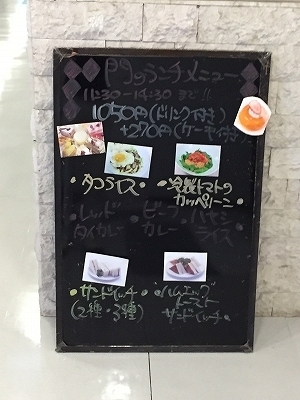 門のランチメニュー
11:30-14:30まで!!
1050円(ドリンク付き)
+270円(ケーキ付き)
・タコライス・
・冷製トマトの
カッペリーニ・
・レッド
タイカレー
・ビーフ
カレー
・ハヤシ
ライス
・サンドイッチ
(2種・3種)
・ハムエッグ
トースト
サンドイッチ・